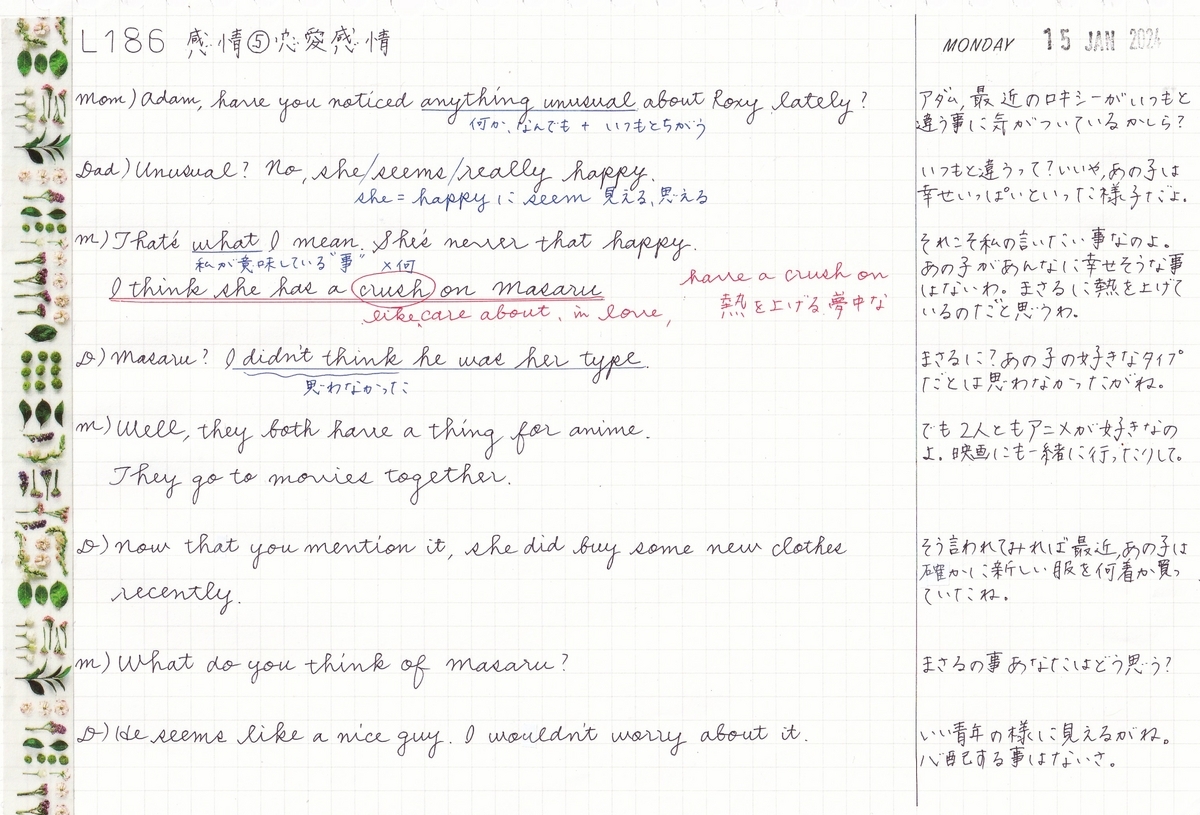 L186 感情⑤恋愛感情
MONDAY 15 JAN 2024
Mom) Adam, have you noticed anything unusual about Roxy lately?
何か、なんでも + いつもとちがう
アダム, 最近のロキシーがいつもと
違う事に気がついているかしら?
Dad) Unusual? No, she/seems/really happy.
she = happy に seem 見える、思える
いつもと違うって?いいや,あの子は
幸せいっぱいといった様子だよ。
M) That's what I mean. She's never that happy.
私が意味している"事" ×何
I think she has a crush on Masaru
like, care about, in love,
have a crush on
熱を上げる,夢中な
それこそ私の言いたい事なのよ。
あの子があんなに幸せそうな事
はないわ。まさるに熱を上げて
いるのだと思うわ。
D) Masaru? I didn't think he was her type.
思わなかった
まさるに?あの子の好きなタイプ
だとは思わなかったがね。
M) Well, they both have a thing for anime.
They go to movies together.
でも2人ともアニメが好きなの
よ. 映画にも一緒に行ったりして。
D) Now that you mention it, she did buy some new clothes
recently.
そう言われてみれば最近,あの子は
確かに新しい服を何着か買っ
ていたね。
M) What do you think of Masaru?
まさるの事あなたはどう思う?
D) He seems like a nice guy. I wouldn't worry about it.
いい青年の様に見えるがね。
心配する事はないさ。